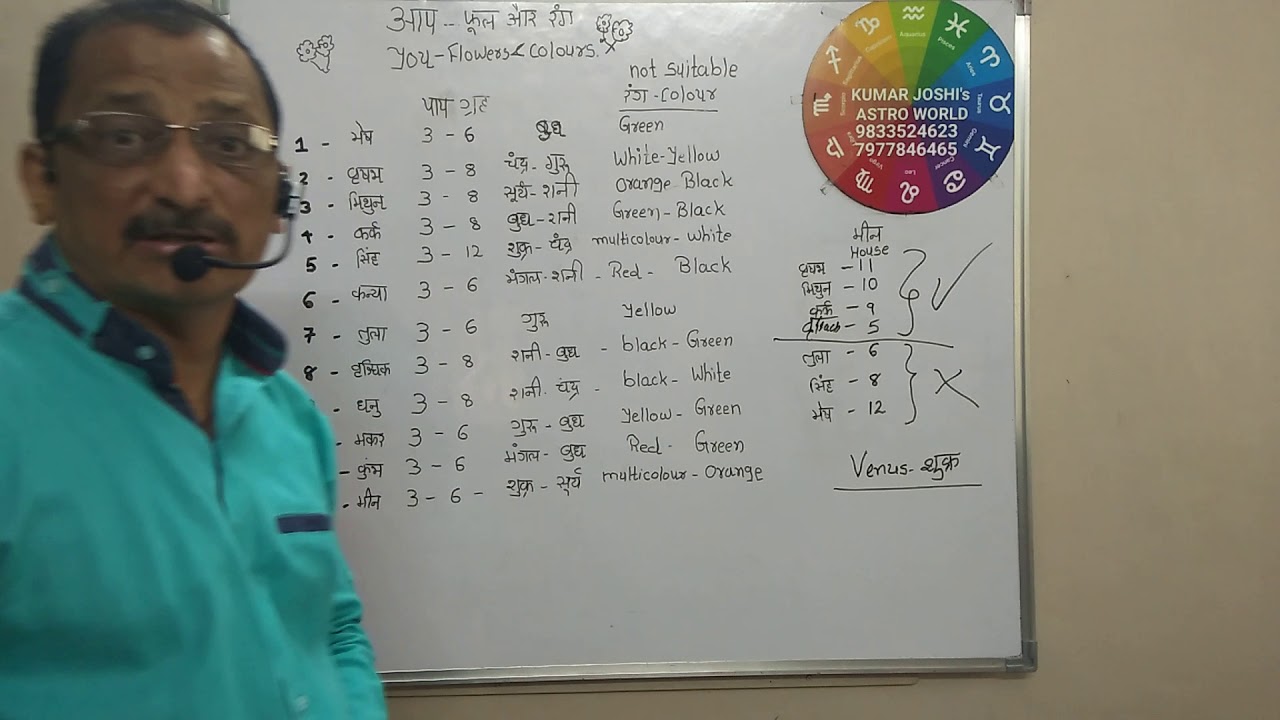 आप - फूल और रंग
You - Flowers & Colours.
not suitable
पाप ग्रह रंग - Colour
1 - मेष 3 - 6 बुध Green
2 - वृषभ 3 - 8 चंद्र - गुरू White-Yellow
3 - मिथुन 3 - 8 सूर्य - शनी Orange Black
4 - कर्क 3 - 8 बुध - शनी Green - Black
5 - सिंह 3 - 12 शुक्र - चंद्र multicolour - White
6 - कन्या 3 - 6 मंगल - शनी - Red - Black
7 - तुला 3 - 6 गुरू Yellow
8 - वृश्चिक 3 - 8 शनी - बुध - black - Green
- धनु 3 - 8 शनी - चंद्र - black - White
- मकर 3 - 6 गुरू - बुध Yellow - Green
- कुंभ 3 - 6 मंगल - बुध Red - Green
- मीन 3 - 6 - शुक्र - सूर्य multicolour - Orange
Aquarius
Pisces
Aries
Taurus
Gemini
Cancer
Leo
Virgo
Libra
Scorpio
Sagittarius
Capricorn
KUMAR JOSHI's
ASTRO WORLD
9833524623
7977846465
मीन
House
वृषभ - 11
मिथुन - 10
कर्क - 9
- 5
तुला - 6
सिंह - 8
मेष - 12
Venus - शुक्र